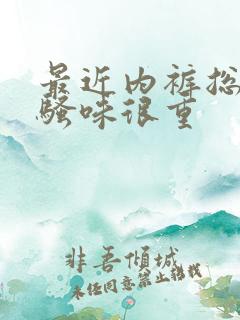 最近内裤总
骚味很重
非吾倾城
未经同意禁止转载